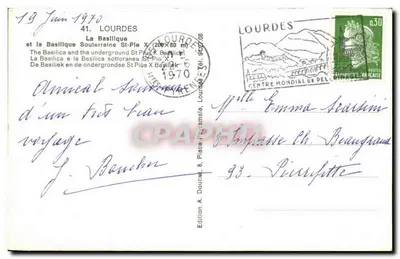 19 Juin 1970
41. LOURDES
La Basilique
et la Basilique Souterraine St-Pie X (200x80 m)
The Basilica and the underground St Pie X Basilica
La Basilica e la Basilica sotteranea St
De Basiliek en de ondergrondse St-Pius X Basiliek
Amical souvenir
d'un très beau
voyage
J. Boucher
Edition A. Doucet, 8, Place Peyramale, Lourdes Tél.
LOURDES
1970
HTES PYRENEES
LOURDES
CENTRE MONDIAL DE PEL
0,30
REPUBLIQUE FRANCAISE
Mlle Emma Searsini
Impasse Ch. Beaugrand
93. Pierrefitte
delcampe